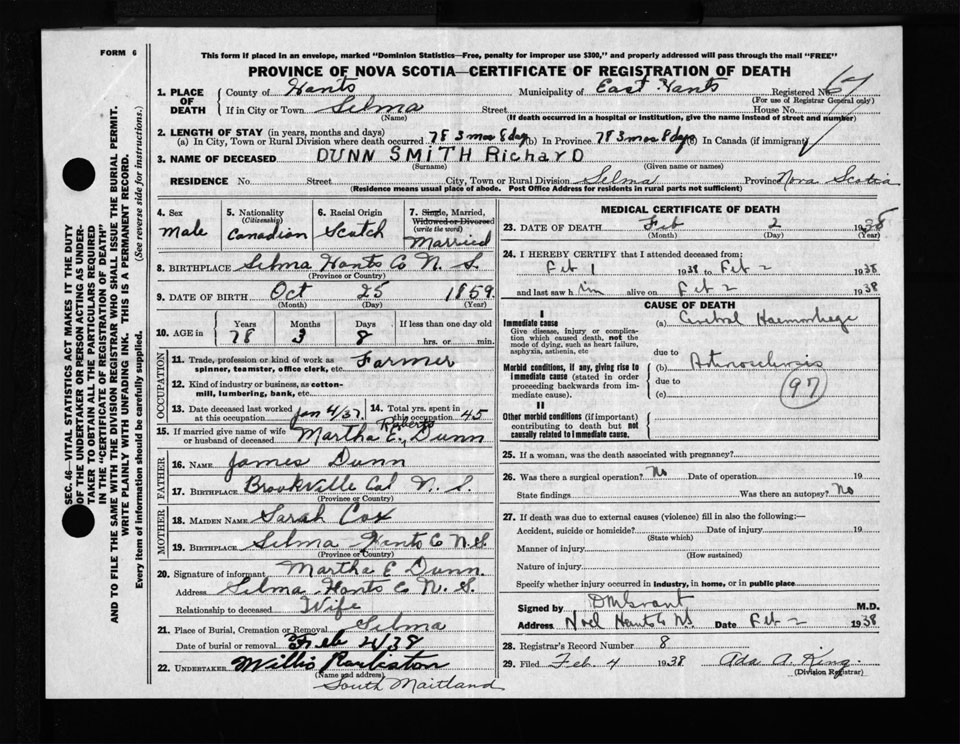 FORM 6
This form if placed in an envelope, marked "Dominion Statistics—Free, penalty for improper use $300," and properly addressed will pass through the mail "FREE"
PROVINCE OF NOVA SCOTIA—CERTIFICATE OF REGISTRATION OF DEATH
1. PLACE OF DEATH
County of Hants Municipality of East Hants Registered No. 67
(For use of Registrar General only)
If in City or Town Selma Street House No.
(Name) (If death occurred in a hospital or institution, give the name instead of street and number)
2. LENGTH OF STAY (in years, months and days)
(a) In City, Town or Rural Division where death occurred 78 3 mos 8 day (b) In Province 78 3 mos 8 days (c) In Canada (if immigrant)
3. NAME OF DECEASED DUNN SMITH Richard
(Surname) (Given name or names)
RESIDENCE No. Street City, Town or Rural Division Selma Province Nova Scotia
(Residence means usual place of abode. Post Office Address for residents in rural parts not sufficient)
4. Sex Male
5. Nationality (Citizenship) Canadian
6. Racial Origin Scotch
7. Single, Married, Widowed or Divorced (write the word) Married
8. BIRTHPLACE Selma Hants Co N. S.
(Province or Country)
9. DATE OF BIRTH Oct 25 1859
(Month) (Day) (Year)
10. AGE in Years Months Days If less than one day old
78 3 8 hrs. or min.
OCCUPATION
11. Trade, profession or kind of work as spinner, teamster, office clerk, etc. Farmer
12. Kind of industry or business, as cotton-mill, lumbering, bank, etc.
13. Date deceased last worked at this occupation Jan 4/37
14. Total yrs. spent in this occupation 45
15. If married give name of wife or husband of deceased Martha E. Roberts Dunn
FATHER
16. NAME James Dunn
17. BIRTHPLACE Brookville Col N. S.
(Province or Country)
MOTHER
18. MAIDEN NAME Sarah Cox
19. BIRTHPLACE Selma Hants Co N.S
(Province or Country)
20. Signature of informant Martha E Dunn.
Address Selma Hants Co N. S.
Relationship to deceased Wife
21. Place of Burial, Cremation or Removal Selma
Date of burial or removal Feb 4/38
22. UNDERTAKER Willis
(Name and address)
South Maitland
MEDICAL CERTIFICATE OF DEATH
23. DATE OF DEATH Feb 2 1938
(Month) (Day) (Year)
24. I HEREBY CERTIFY that I attended deceased from:
Feb 1 1938 to Feb 2 1938
and last saw him alive on Feb 2 1938
CAUSE OF DEATH
I
Immediate cause (a) Cerebral Haemorrhage
Give disease, injury or complication which caused death, not the mode of dying, such as heart failure, asphyxia, asthenia, etc
due to
Morbid conditions, if any, giving rise to immediate cause (stated in order proceeding backwards from immediate cause). (b) Arteriosclerosis
due to
(c)
97
II
Other morbid conditions (if important) contributing to death but not causally related to immediate cause.
25. If a woman, was the death associated with pregnancy?
26. Was there a surgical operation? No Date of operation 19
State findings Was there an autopsy? No
27. If death was due to external causes (violence) fill in also the following:—
Accident, suicide or homicide? Date of injury 19
(State which)
Manner of injury
(How sustained)
Nature of injury
Specify whether injury occurred in industry, in home, or in public place
Signed by DM Grant M.D.
Address Noel Hants Co NS Date Feb 2 1938
28. Registrar's Record Number 8
29. Filed Feb. 4 1938 Ada A. King.
(Division Registrar)
SEC. 46—VITAL STATISTICS ACT MAKES IT THE DUTY
OF THE UNDERTAKER OR PERSON ACTING AS UNDER-
TAKER TO OBTAIN ALL THE PARTICULARS REQUIRED
IN THE "CERTIFICATE OF REGISTRATION OF DEATH"
AND TO FILE THE SAME WITH THE DIVISION REGISTRAR WHO SHALL ISSUE THE BURIAL PERMIT.
WRITE PLAINLY WITH UNFADING INK. THIS IS A PERMANENT RECORD.
Every item of information should be carefully supplied. (See reverse side for instructions.)